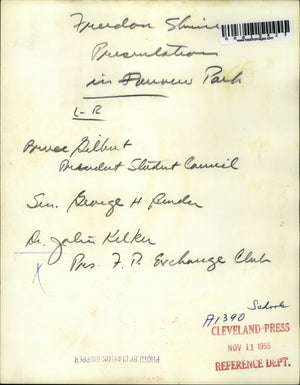 Freedom Shrine
Presentation
in Fairview Park
L-R
Bruce Gilbert
President Student Council
Sen. George H Bender
Dr. John Kelker
Pres. F. P. Exchange Club
Schools
A1390
CLEVELAND PRESS
NOV 11 1955
REFERENCE DEPT.
PHOTO BY CLAYTON KNIPPER